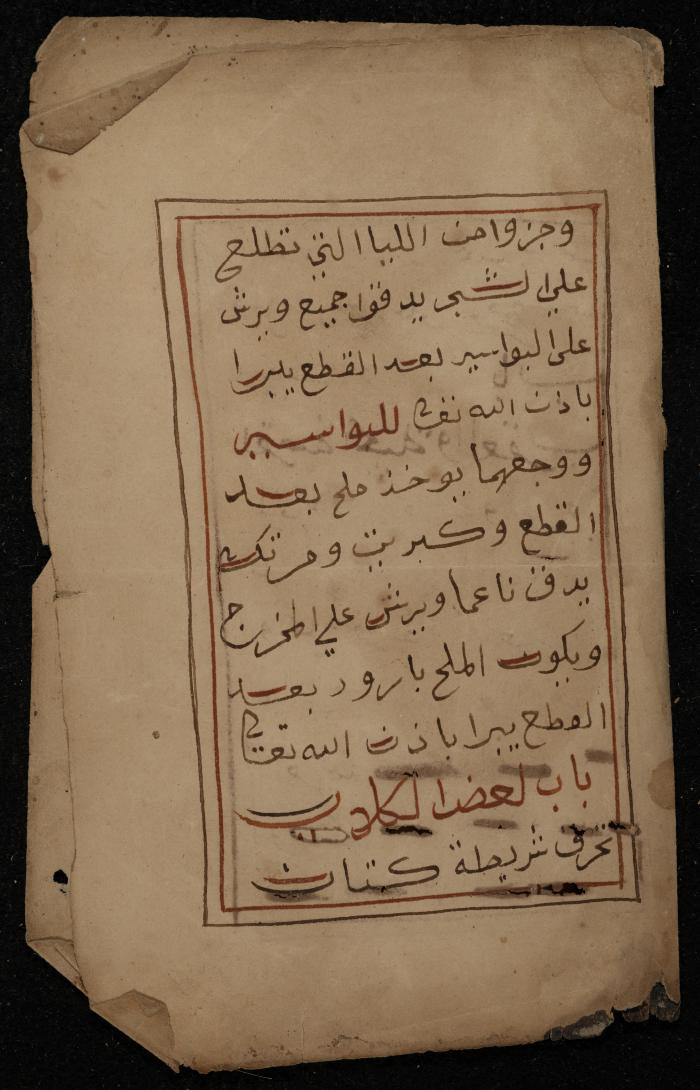 وجزوا من اللبا التي تطلع
علي الشجر يدقوا جميع ويرش
علي البواسير بعد القطع يبرا
باذن الله تعالى للبواسير
ووجعها يوخذ ملح بعد
القطع وكبريت ومرتك
يدق ناعما ويرش علي المخرج
ويكون الملح بارود بعد
القطع يبرا باذن الله تعالى
باب لعضة الكلاب
تحرق شريطة كتان